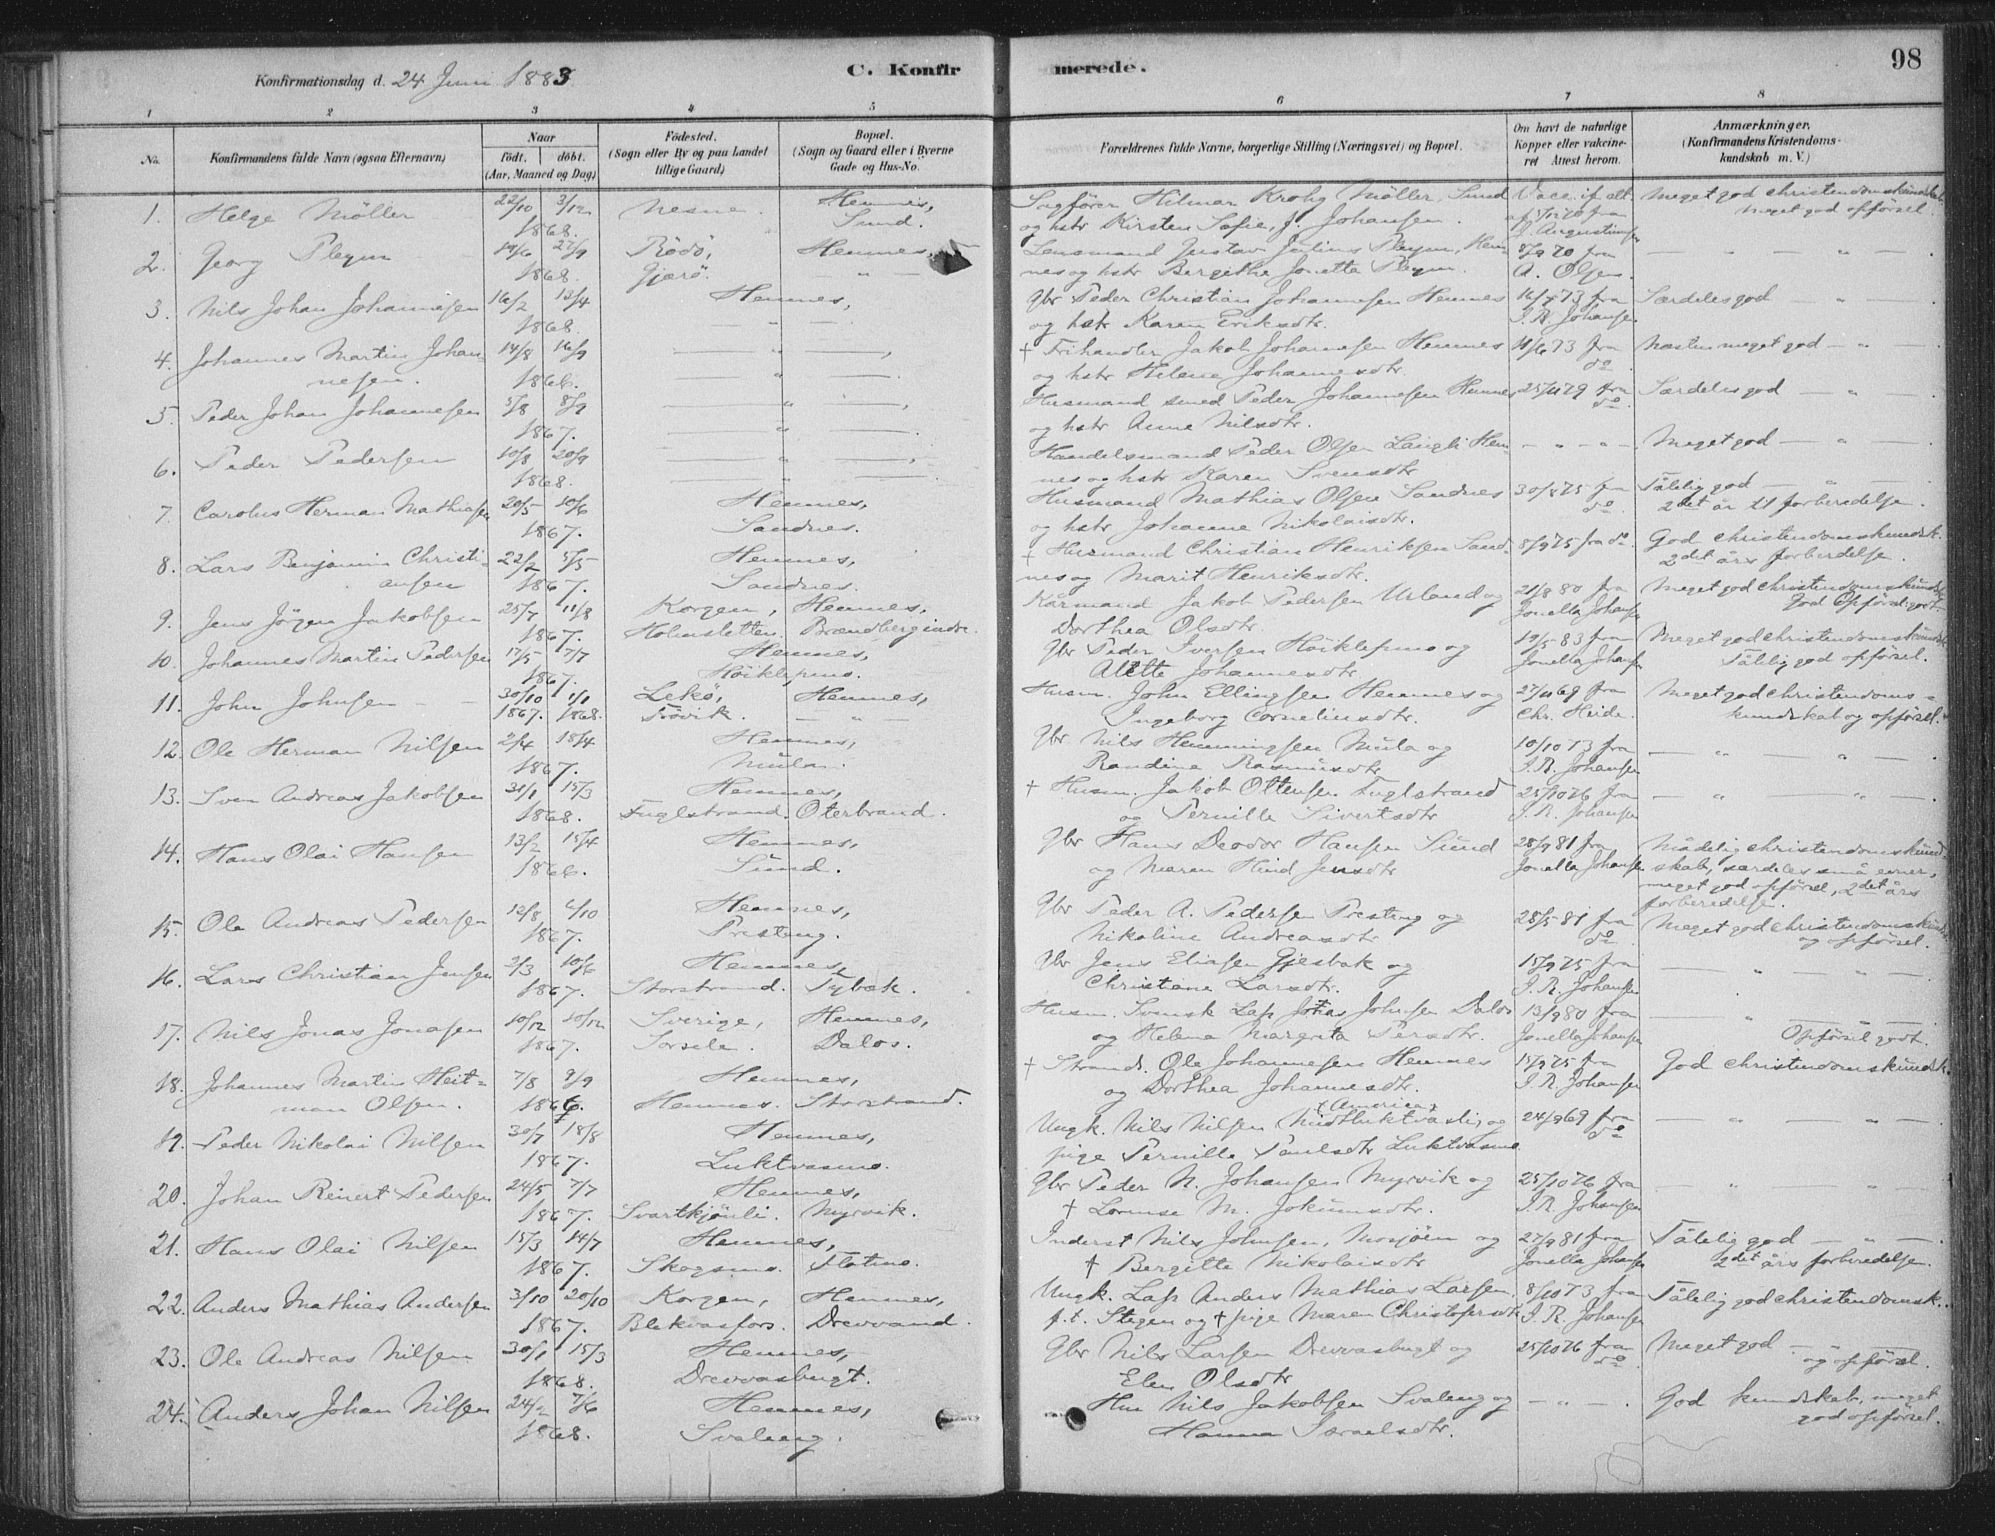 98
Konfirmationsdag d. 24 Juni 1883
C. Konfirmerede.
1 2 3 4 5 6 7 8
No.
Konfirmandens fulde Navn (ogsaa Efternavn)
Naar
födt. döbt.
(Aar, Maaned og Dag)
Födested.
(Sogn eller By og paa Landet
tillige Gaard)
Bopæl.
(Sogn og Gaard eller i Byerne
Gade og Hus-No.
Forældrenes fulde Navne, borgerlige Stilling (Næringsvei) og Bopæl.
Om havt de naturlige
Kopper eller vakcine-
ret Attest herom.
Anmærkninger.
(Konfirmandens Kristendoms-
kundskab m. V.)
1. Helge Möller 22/10 3/12 1868. Nesne. Hemnes, Sund.
Sagförer Hilmar Krohg Möller, Sund
og hstr Kirsten Sofie, f. Johansen.
Vacc. if. att. af 5/12 70 fra J. Augustinsen
Meget god christendomskundskab.
Meget god opförsel.
2. Georg Pleym 14/6 27/9 1868. Rödö, Gjærö. Hemnes, — " —
Lensmand Gustav Julius Pleym, Hem-
nes og hstr Bergithe Jonette Pleym.
8/9 70 fra A. Olsen.
— " — " — " —
3. Nils Johan Johannesen 16/2 13/4 1868. Hemnes, — " —
Gbr Peder Christian Johannesen Hemnes
og hstr Karen Eriksdtr.
16/7 73 fra J. R. Johansen
Særdeles god — " —
4. Johannes Martin Johan-
nesen. 14/8 16/9 1866. — " —, — " —
† Frihandler Jakob Johannesen Hemnes
og hstr Helene Johannesdtr.
11/6 73 fra do
Næsten meget god — " —
5. Peder Johan Johannesen 5/8 8/9 1867. — " —, — " —
Husmand smed Peder Johannesen Hemnes
og hstr Anne Nilsdtr.
25/11 79 fra do.
Særdeles god — " —
6. Peder Pedersen 10/8 20/9 1868. — " —, — " —
Handelsmand Peder Olsen Langli Hem-
nes og hstr Karen Svensdtr
— " — " —
Meget god — " —
7. Carolus Herman Mathiasen 20/5 10/6 1867. Hemnes, Sandnes.
Husmand Mathias Olsen Sandnes
og hstr Johanne Nikolaisdtr.
30/8 75 fra do
Tålelig god — " —
2det år til forberedelse.
8. Lars Benjamin Christi-
ansen 22/2 5/5 1867. Hemnes, Sandnes.
† Husmand Christian Henriksen Sand-
nes og Marit Henriksdtr.
8/9 75 fra do.
God christendomskundsk.
2det års forberedelse.
9. Jens Jörgen Jakobsen 25/7 11/8 1867. Korgen, Holmsletten. Hemnes, Brændberg indre.
Kårmand Jakob Pedersen Urland og
Dorthea Olsdtr.
21/8 80 fra Jonella Johansen
Meget god christendomskundsk.
god Opförsel: godt.
10. Johannes Martin Pedersen 17/5 7/7 1867. Hemnes, Höiklepmo.
Gbr Peder Iversen Höiklepmo og
Alette Johannesdtr.
19/5 83 fra Jonella Johansen
Meget god christendomskundsk.
Tålelig god opförsel.
11. John Johnsen — — 30/10 1867. 1/1 1868. Lekö, Hemnes,
Husm. John Ellingsen Hemnes og
Ingeborg Corneliusdtr.
27/11 69 fra Chr. Heide.
Meget god christendoms-
kundskab og opförsel.
12. Ole Herman Nilsen 2/4 18/4 1867. Hemnes, Mula.
Gbr Nils Hemmingsen Mula og
Randine Rasmusdtr
10/10 73 fra J. R. Johansen
— " — " —
13. Sven Andreas Jakobsen 31/1 15/3 1868. Hemnes, Fuglstrand. Oterbrand.
† Husm. Jakob Ottensen Fuglstrand
og Pernille Sivertsdtr
25/10 76 fra J. R. Johansen
— " — " —
14. Hans Olai Hansen 13/2 15/4 1866. Hemnes, Sund.
Gbr Hans Deodor Hansen Sund
og Maren Hind Jensdtr
28/9 81 fra Jonella Johansen
Mådelig christendomskund-
skab, særdeles små evner,
meget god opförsel, 2det års
forberedelse.
15. Ole Andreas Pedersen 12/8 6/10 1867. Hemnes, Presteng.
Gbr Peder A. Pedersen Presteng og
Nikoline Andreasdtr
28/5 81 fra do
Meget god christendomskundsk.
og opförsel.
16. Lars Christian Jensen 2/3 10/6 1867. Hemnes, Storstrand.
Gbr Jens Eliasen Gjesbak og
Christiane Larsdtr.
15/9 75 fra J. R. Johansen
— " — " —
17. Nils Jonas Jonasen 10/12 10/12 1867. Sverige, Sorsele. Hemnes, Dalos.
Husm. Svensk Lap Jonas Johnsen Dalos
og Helene Margreta Persdtr.
13/9 80 fra Jonella Johansen
— " — " —
Opförsel godt.
18. Johannes Martin Heit-
man Olsen. 7/8 9/9 1867. Hemnes, Hemnes. Storstrand.
† Strands. Ole Johannesen Hemnes
og Dorthea Johannesdtr.
15/9 75 fra J. R. Johansen
God christendomskundsk.
19. Peder Nikolai Nilsen 30/7 18/8 1867. Hemnes, Luktvasmo.
(America)
Ungk. Nils Nilsen Midtluktvasli, og
pige Pernille Paulsdtr Luktvasmo
24/9 69 fra do
— " — " —
20. Johan Reinert Pedersen 24/5 7/7 1867. Hemnes, Svartkjönli. Myrvik.
Gbr Peder N. Johansen Myrvik og
† Lorense M. Jokumsdtr.
25/10 76 fra J. R. Johansen
— " — " —
21. Hans Olai Nilsen 15/3 14/7 1867. Hemnes, Skogsmo. Flatmo.
Inderst Nils Johnsen, Mosjöen og
† Bergitte Nikolaisdtr
27/9 81 fra Jonella Johansen
Tålelig god — " —
2det års forberedelse.
22. Anders Mathias Andersen 3/10 20/10 1867. Korgen, Blekvasfors. Hemnes, Drevvand.
Ungk. Lap Anders Mathias Larsen,
p.t. Stegen og † pige Maren Christofersdtr
8/10 73 fra J. R. Johansen
Tålelig god christendomsk.
23. Ole Andreas Nilsen 30/1 15/3 1868. Hemnes, Drevvasbugt.
Gbr Nils Larsen Drevvasbugt og
Elen Olsdtr
25/10 76 fra do
Meget god — " —
og opförsel.
24. Anders Johan Nilsen 24/2 7/6 1868. Hemnes, Svaleng.
Hm Nils Jakobsen Svaleng og
Hanna Israelsdtr.
— " — .
God kundskab, meget
god opförsel.